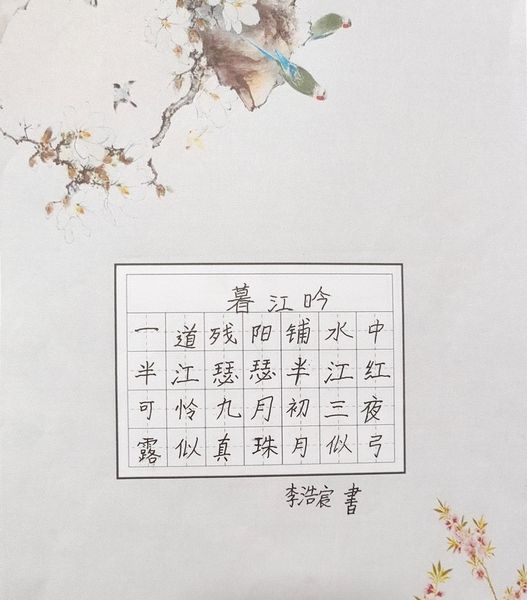 暮江吟
一道残阳铺水中
半江瑟瑟半江红
可怜九月初三夜
露似真珠月似弓
李浩宸 書